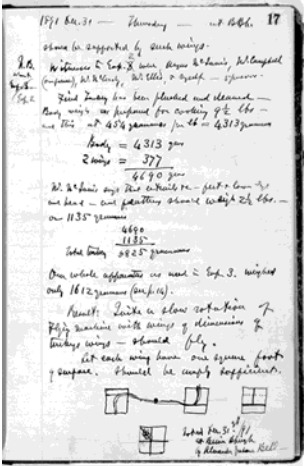 1891 Dec. 31 — Thursday — at B.Bh. 17
should be supported by such wings.
N.B.
Witnesses to Exp. 2 were Messrs McInnis, Mr Campbell
Mr Ellis, & myself — sponsor.
Exp. 2
Find Turkey has been plucked and cleaned —
Body weighs as prepared for cooking 9½ lbs —
and this at 454 grammes per lb = 4313 grammes
Body = 4313 gms
2 wings = 377
4690 gms
Mr McInnis says that entrails — feet & lower legs
and head — and feathers should weigh 2½ lbs. —
or 1135 grammes
4690
1135
Total turkey 5825 grammes
Our whole apparatus as used in Exp. 3. weighed
only 1612 grammes (see p. 14).
Result: Quite a slow rotation of
flying machine with wings of dimensions of
turkeys wings — should fly.
Let each wing have one square foot
of surface. Should be amply sufficient.
Dec 31st /91
at Beinn Bhreagh
by Alexander Graham Bell